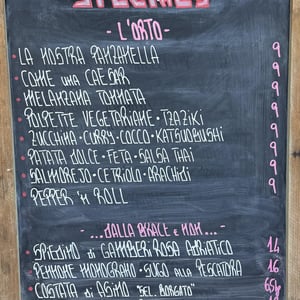 SPECIALS
- L'ORTO -
• LA NOSTRA PANZANELLA 9
• COME una CAESAR 9
• MELANZANA TONNATA 9
• POLPETTE VEGETARIANE • TZAZIKI 9
• ZUCCHINA • CURRY • COCCO • KATSUOBUSHI 9
• PATATA DOLCE • FETA • SALSA THAI 9
• SALMOREJO • CETRIOLO • ARACHIDI 9
• PEPPER 'N ROLL 9
...DALLA BRACE E NON...
• SPIEDINO di GAMBERI ROSA ADRIATICO 14
• PENNONE MONOGRANO • SUGO alla PESCATORA 16
• COSTATA di ASINO "DEL BORGATO" 65/kg